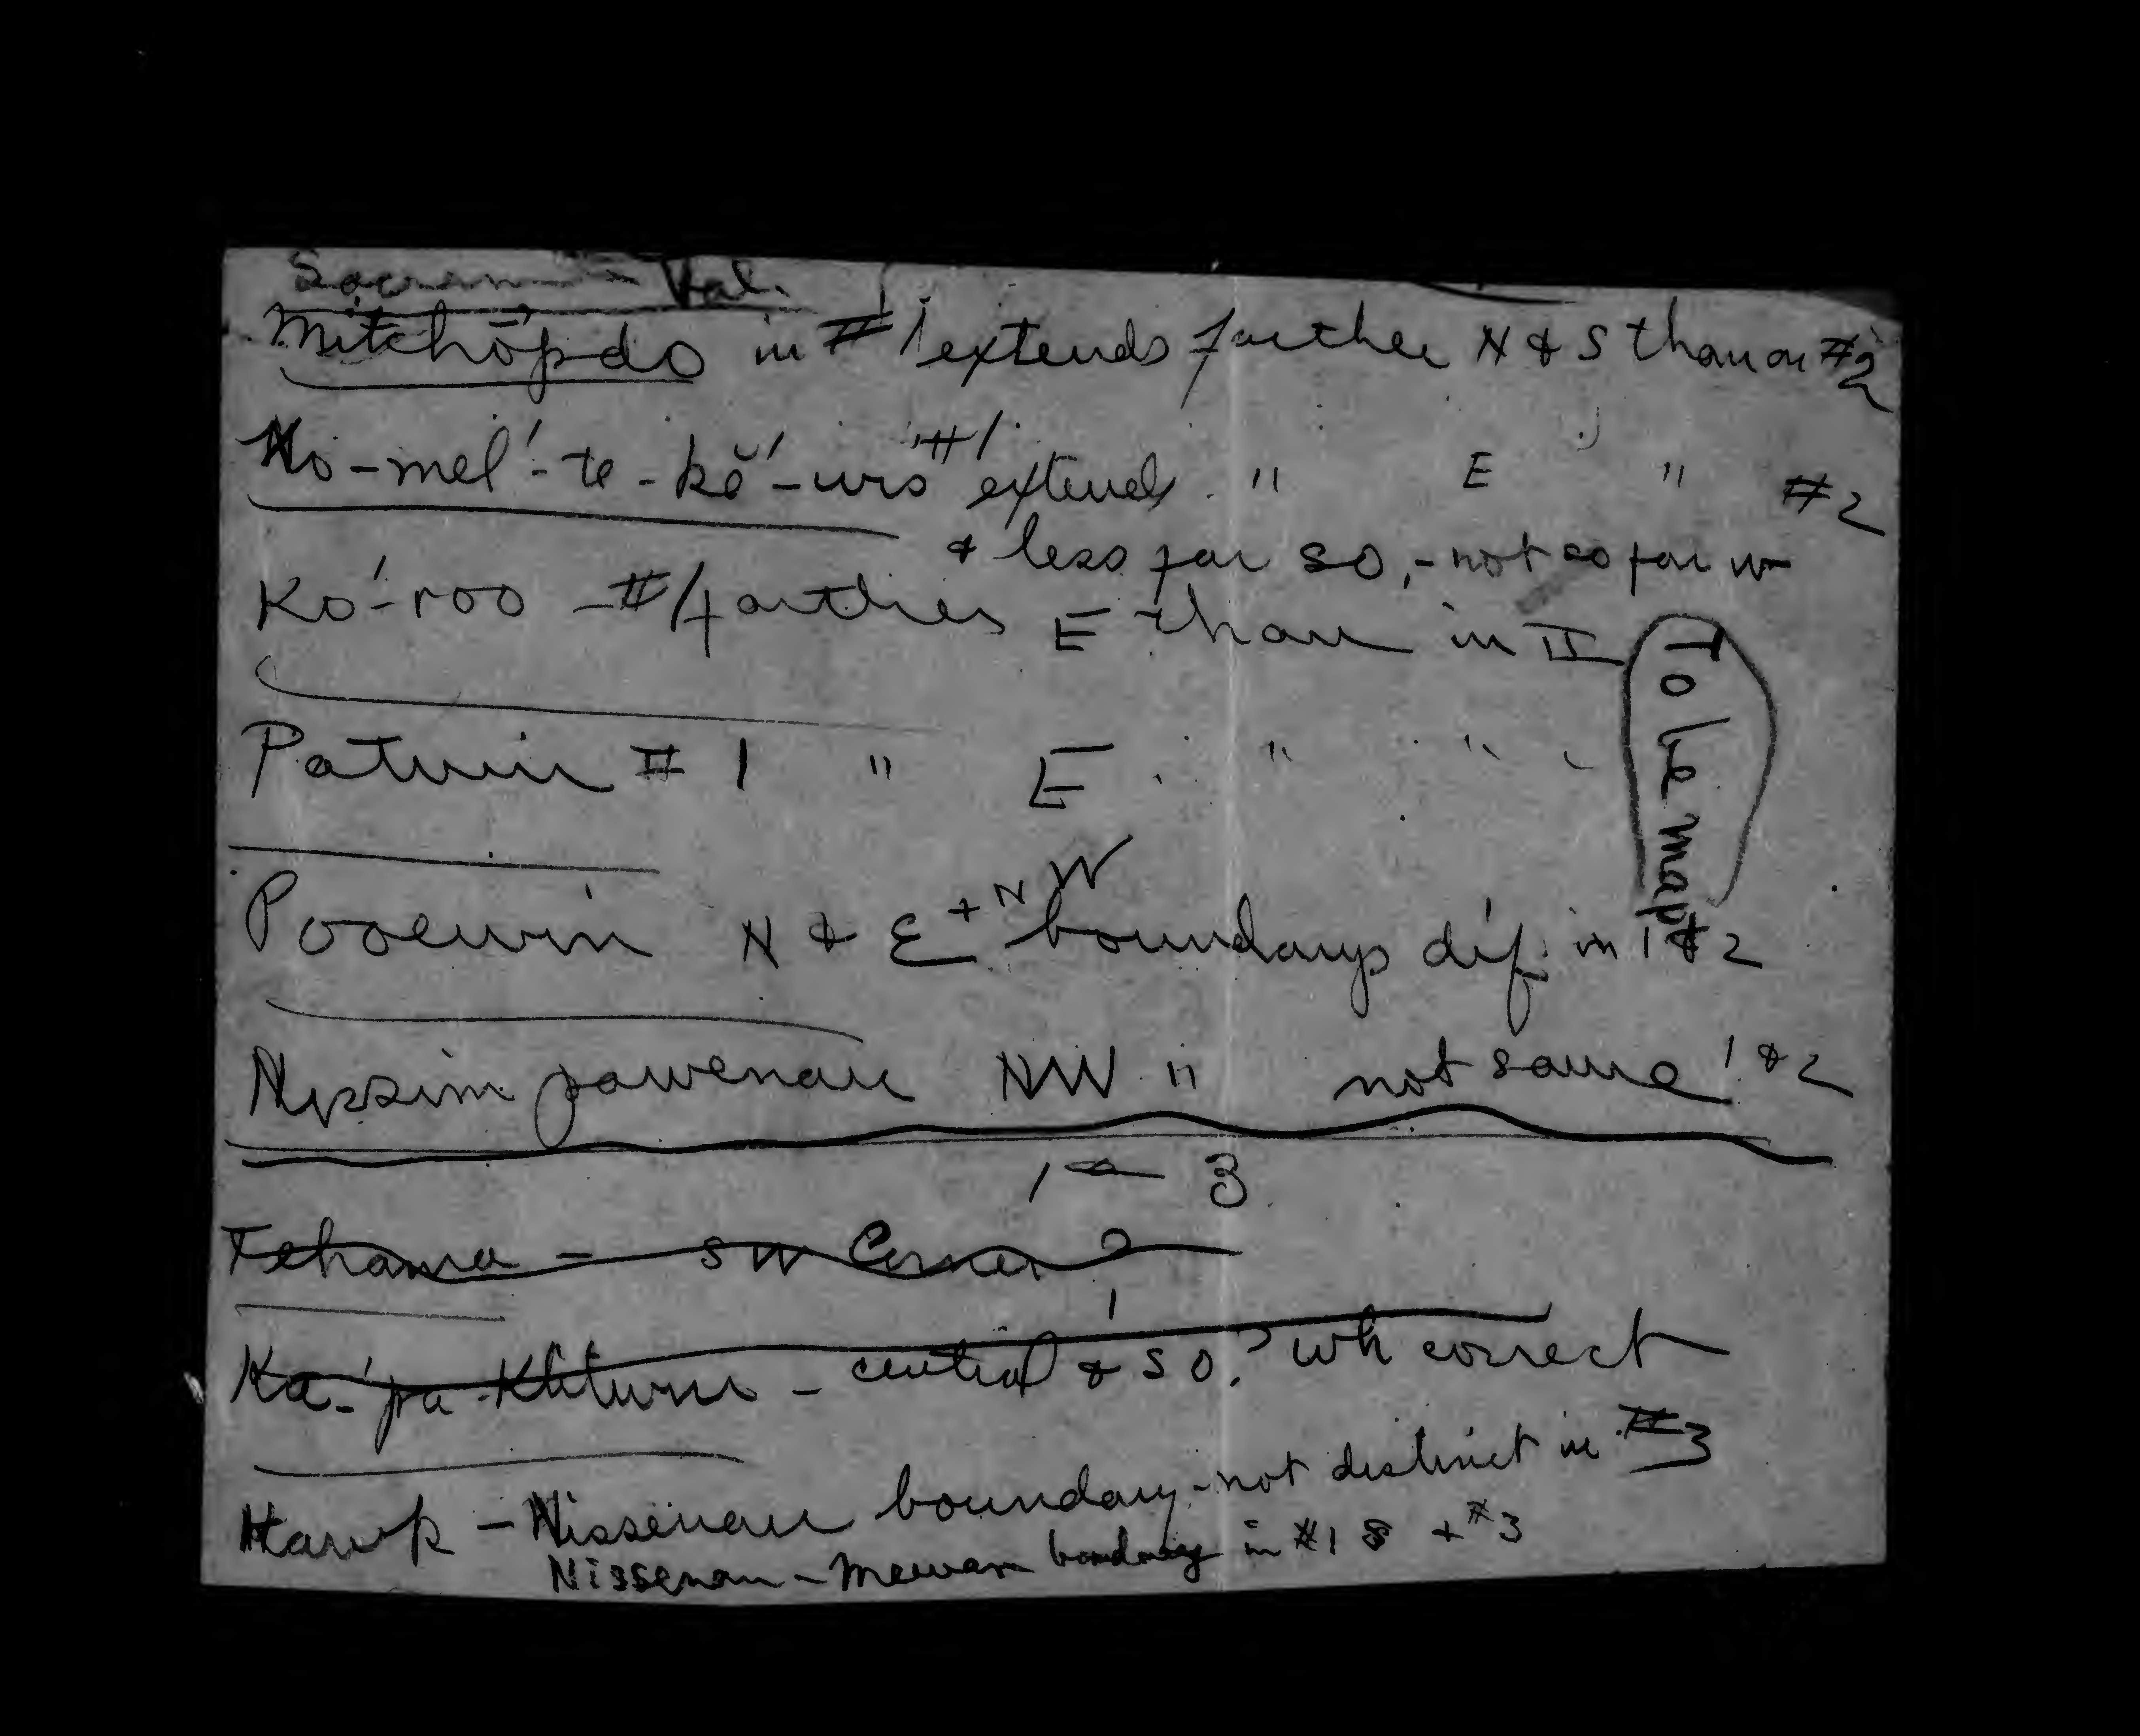 Sacram Val.
Mitchōpdo in #1 extends farther N & S than on #2
No-mel'-te-kĕ'-wis #1 extends " E " #2
& less far so, - not so far w
Ko'-roo - #1 farther E than in II
Patwin # 1 " E " "
To be mapt
Pooewin N & E + NW boundarys dif. in 1 & 2
Nissim pawenan NW " not same 1 & 2
1 - 3
Tehama - SW Corner ?
Ka-'pa - central & SO? wh correct
Hawk - Nissenan boundary - not distinct in #3
Nissenan - Mewan boundary in #1 + #3